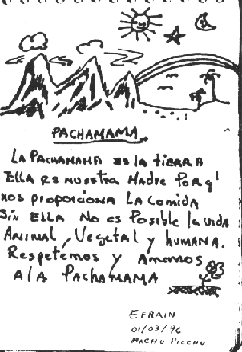 PACHAMAMA
LA PACHAMAMA ES LA tiERRA
Ella es nuestra Madre Porq'
nos proporciona La Comida
Sin ELLA No es Posible la vida
ANIMAL, Vegetal y HUMANA.
Respetemos y Amemos
A LA PACHAMAMA
EFRAIN
01/03/96
MACHU PICCHU